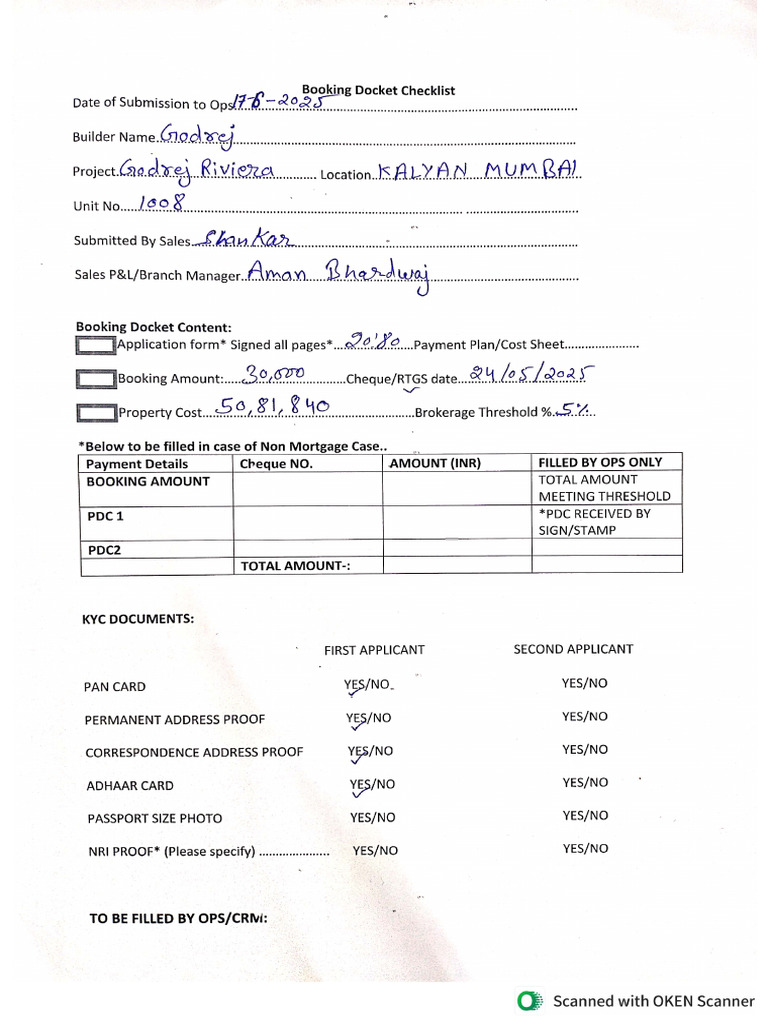 Booking Docket Checklist
Date of Submission to Ops 17-6-2025
Builder Name Godrej
Project Godrej Riviera Location KALYAN MUMBAI
Unit No. 1008
Submitted By Sales Shankar
Sales P&L/Branch Manager Aman Bhardwaj
Booking Docket Content:
Application form* Signed all pages* 20'80 Payment Plan/Cost Sheet
Booking Amount: 30,000 Cheque/RTGS date 24/05/2025
Property Cost 50,81,840 Brokerage Threshold % 5%
*Below to be filled in case of Non Mortgage Case..
Payment Details Cheque NO. AMOUNT (INR) FILLED BY OPS ONLY
BOOKING AMOUNT TOTAL AMOUNT
MEETING THRESHOLD
PDC 1 *PDC RECEIVED BY
SIGN/STAMP
PDC2
TOTAL AMOUNT-:
KYC DOCUMENTS:
FIRST APPLICANT SECOND APPLICANT
PAN CARD YES/NO YES/NO
PERMANENT ADDRESS PROOF YES/NO YES/NO
CORRESPONDENCE ADDRESS PROOF YES/NO YES/NO
ADHAAR CARD YES/NO YES/NO
PASSPORT SIZE PHOTO YES/NO YES/NO
NRI PROOF* (Please specify) .................... YES/NO YES/NO
TO BE FILLED BY OPS/CRM:
Scanned with OKEN Scanner